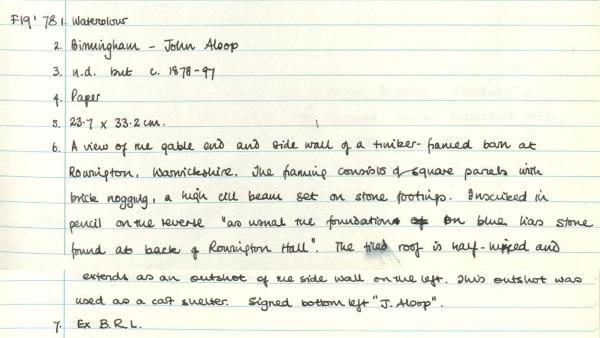 F19' 78 1. Watercolour
2. Birmingham - John Alsop
3. n.d. but c. 1878-97
4. Paper
5. 23.7 x 33.2 cm.
6. A view of the gable end and side wall of a timber-framed barn at
Rowington, Warwickshire. The framing consists of square panels with
brick nogging, a high cill beam set on stone footings. Inscribed in
pencil on the reverse "as usual the foundation on blue lias stone
found at back of Rowington Hall". The tiled roof is half-hipped and
extends as an outshot of the side wall on the left. This outshot was
used as a cart shelter. Signed bottom left "J. Alsop".
7. Ex B.R.L.